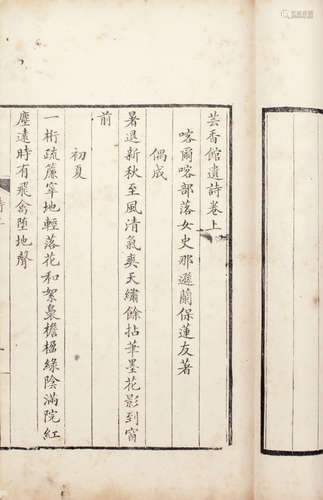 芸香館遺詩卷上
喀爾喀部落女史那遜蘭保蓮友著
偶成
暑退新秋至風清氣爽天繡餘拈筆墨花影到窗
前
初夏
一桁疏簾窣地輕落花和絮裊檐楹綠陰滿院紅
塵遠時有飛禽墮地聲